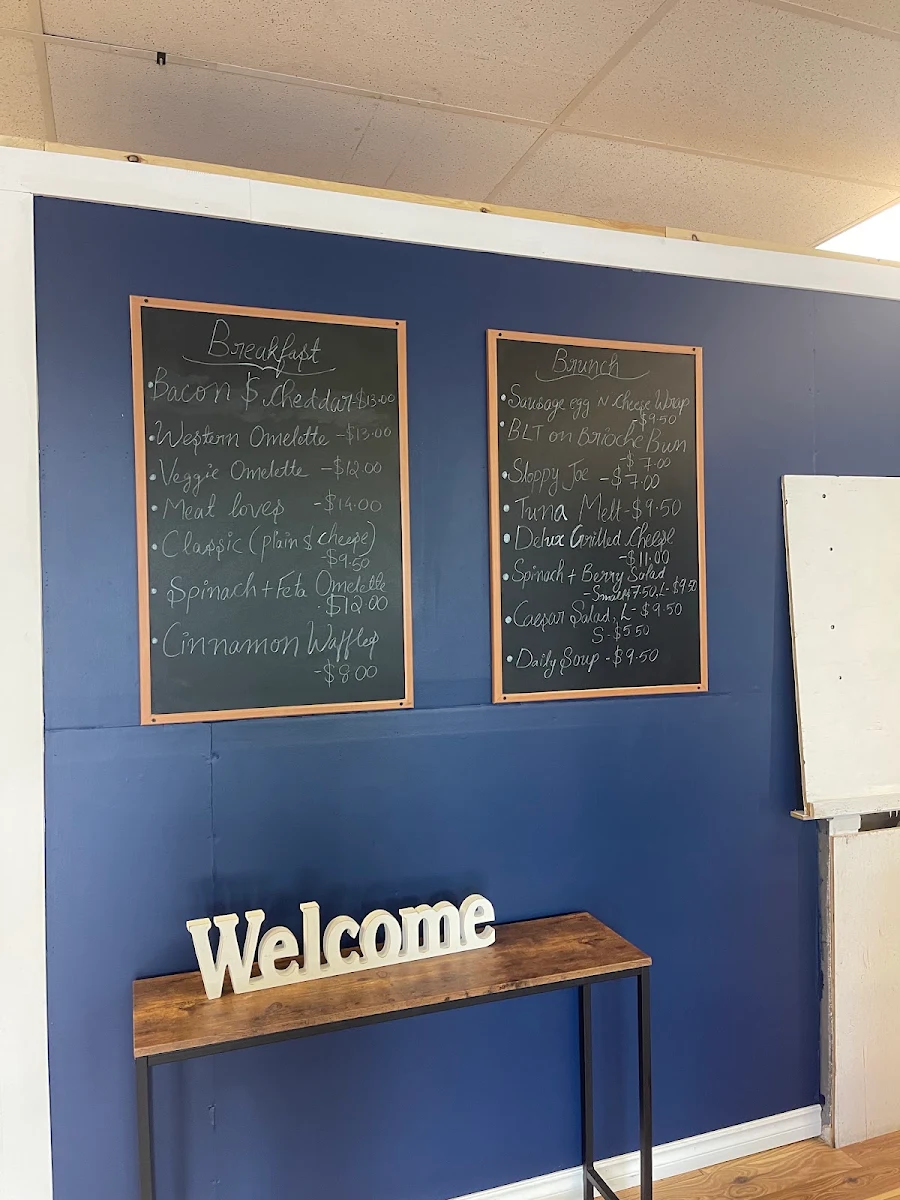 Breakfast
Bacon & Cheddar-$13.00
Western Omelette -$13.00
Veggie Omelette -$12.00
Meat loves -$14.00
Classic (plain & cheese)
-$9.50
Spinach + Feta Omelette
$12.00
Cinnamon Waffles
-$8.00
Brunch
Sausage egg N cheese Wrap
$9.50
BLT on Brioche Bun
-$7.00
Sloppy Joe -$7.00
Tuna Melt-$9.50
Delux Grilled Cheese
-$11.00
Spinach + Berry Salad
-Small$7.50, L-$9.50
Caesar Salad, L-$9.50
S-$5.50
Daily Soup -$9.50
Welcome